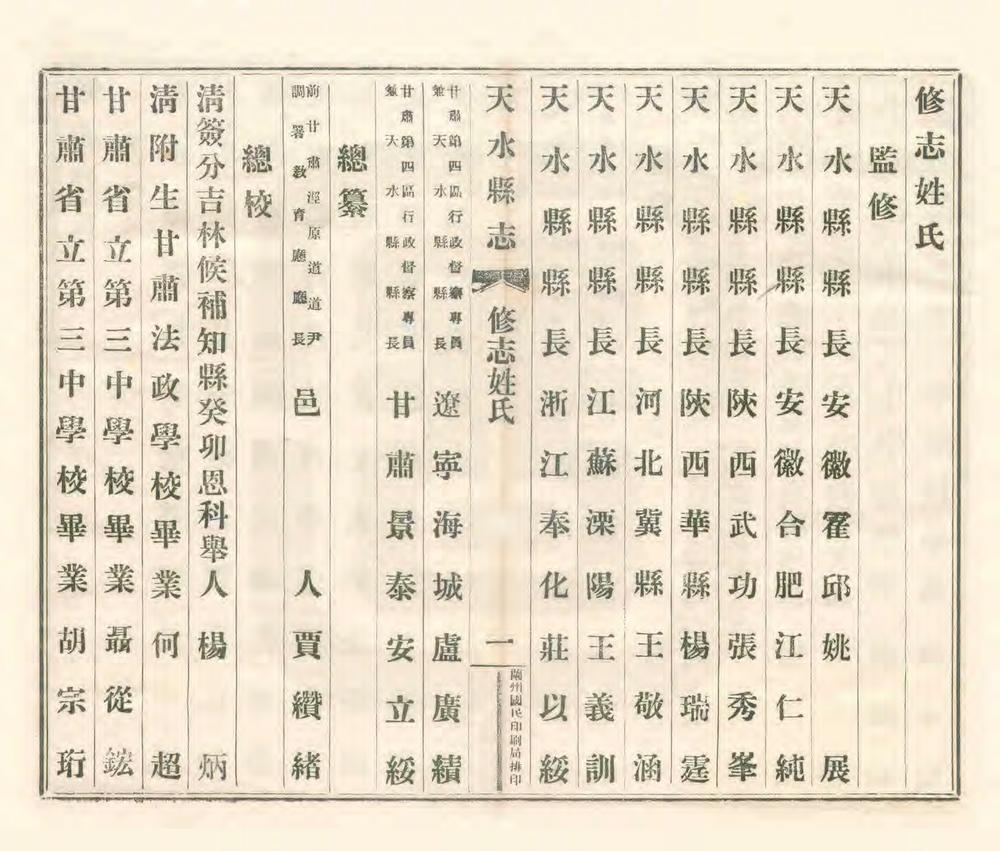 修志姓氏
監修
天水縣縣長安徽霍邱姚展
天水縣縣長安徽合肥江仁純
天水縣縣長陝西武功張秀峯
天水縣縣長陝西華縣楊瑞霆
天水縣縣長河北冀縣王敬涵
天水縣縣長江蘇溧陽王義訓
天水縣縣長浙江奉化莊以綏
天水縣志
修志姓氏
一
蘭州國民印刷局排印
甘肅第四區行政督察專員
兼天水縣縣長
遼寧海城盧廣績
甘肅第四區行政督察專員
兼天水縣縣長
甘肅景泰安立綏
總纂
前甘肅涇原道道尹
調署教育廳廳長
邑人賈纘緒
總校
清簽分吉林候補知縣癸卯恩科舉人楊炳
清附生甘肅法政學校畢業何超
甘肅省立第三中學校畢業聶從鋐
甘肅省立第三中學校畢業胡宗珩